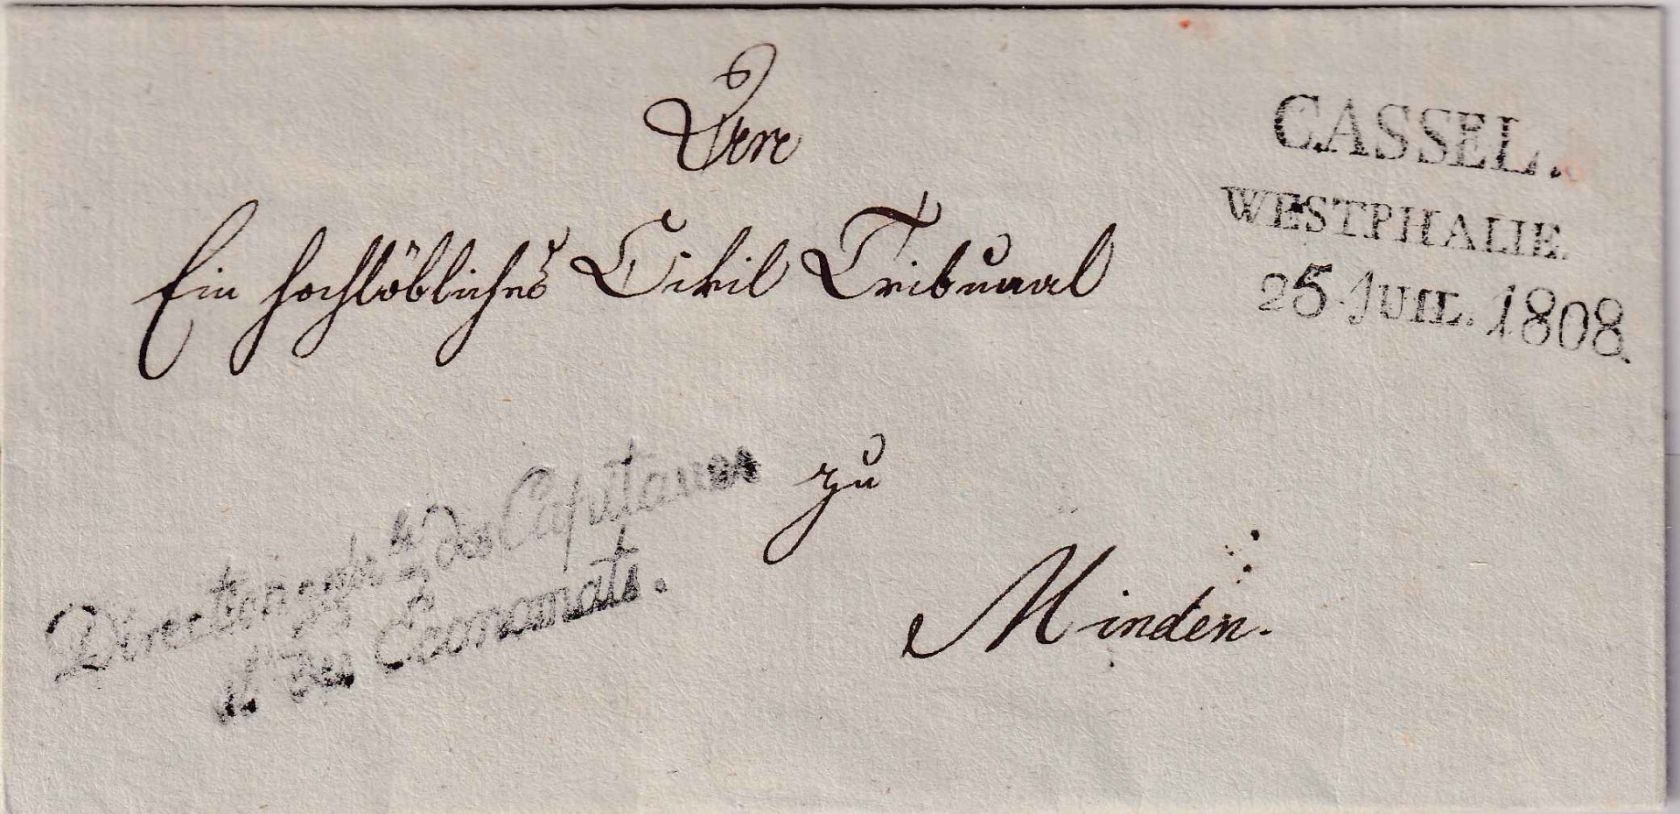 An
Ein hochlöbliches Civil Tribunal
zu
Minden.
CASSEL.
WESTPHALIE.
25 JUIL. 1808.
Direction génle des Capitaux
et des Economats.